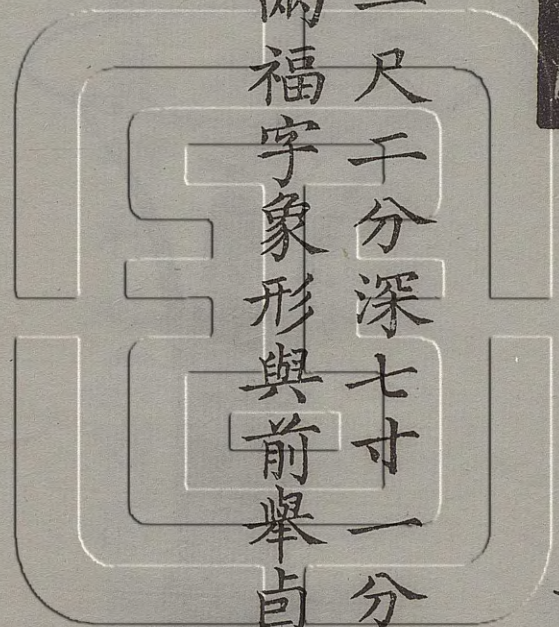 尺二分深七寸一分
福字象形與前舉卣